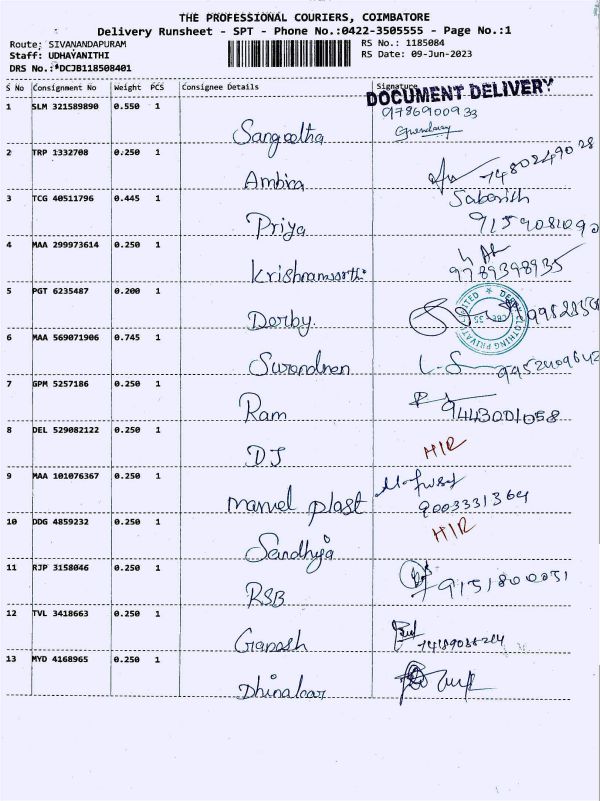 THE PROFESSIONAL COURIERS, COIMBATORE
Delivery Runsheet - SPT - Phone No.:0422-3505555 - Page No.:1
Route: SIVANANDAPURAM
RS No.: 1185084
Staff: UDHAYANITHI
RS Date: 09-Jun-2023
DRS No.:*DCJB118508401
S No Consignment No Weight PCS Consignee Details Signature
DOCUMENT DELIVERY
1 SLM 321589890 0.550 1
9786900933
Sangeetha
2 TRP 1332708 0.250 1
7480249028
Ambica
3 TCG 40511796 0.445 1
Priya
4 MAA 299973614 0.250 1
Krishnamoorthi
9789398935
5 PGT 6235487 0.200 1
Derby
6 MAA 569071906 0.745 1
7 GPM 5257186 0.250 1
Ram
9443001058
8 DEL 529082122 0.250 1
DJ
9 MAA 101076367 0.250 1
marvel plast
9003331364
10 DDG 4859232 0.250 1
Sandhiya
11 RJP 3158046 0.250 1
RSB
9151800051
12 TVL 3418663 0.250 1
Ganesh
13 MYD 4168965 0.250 1